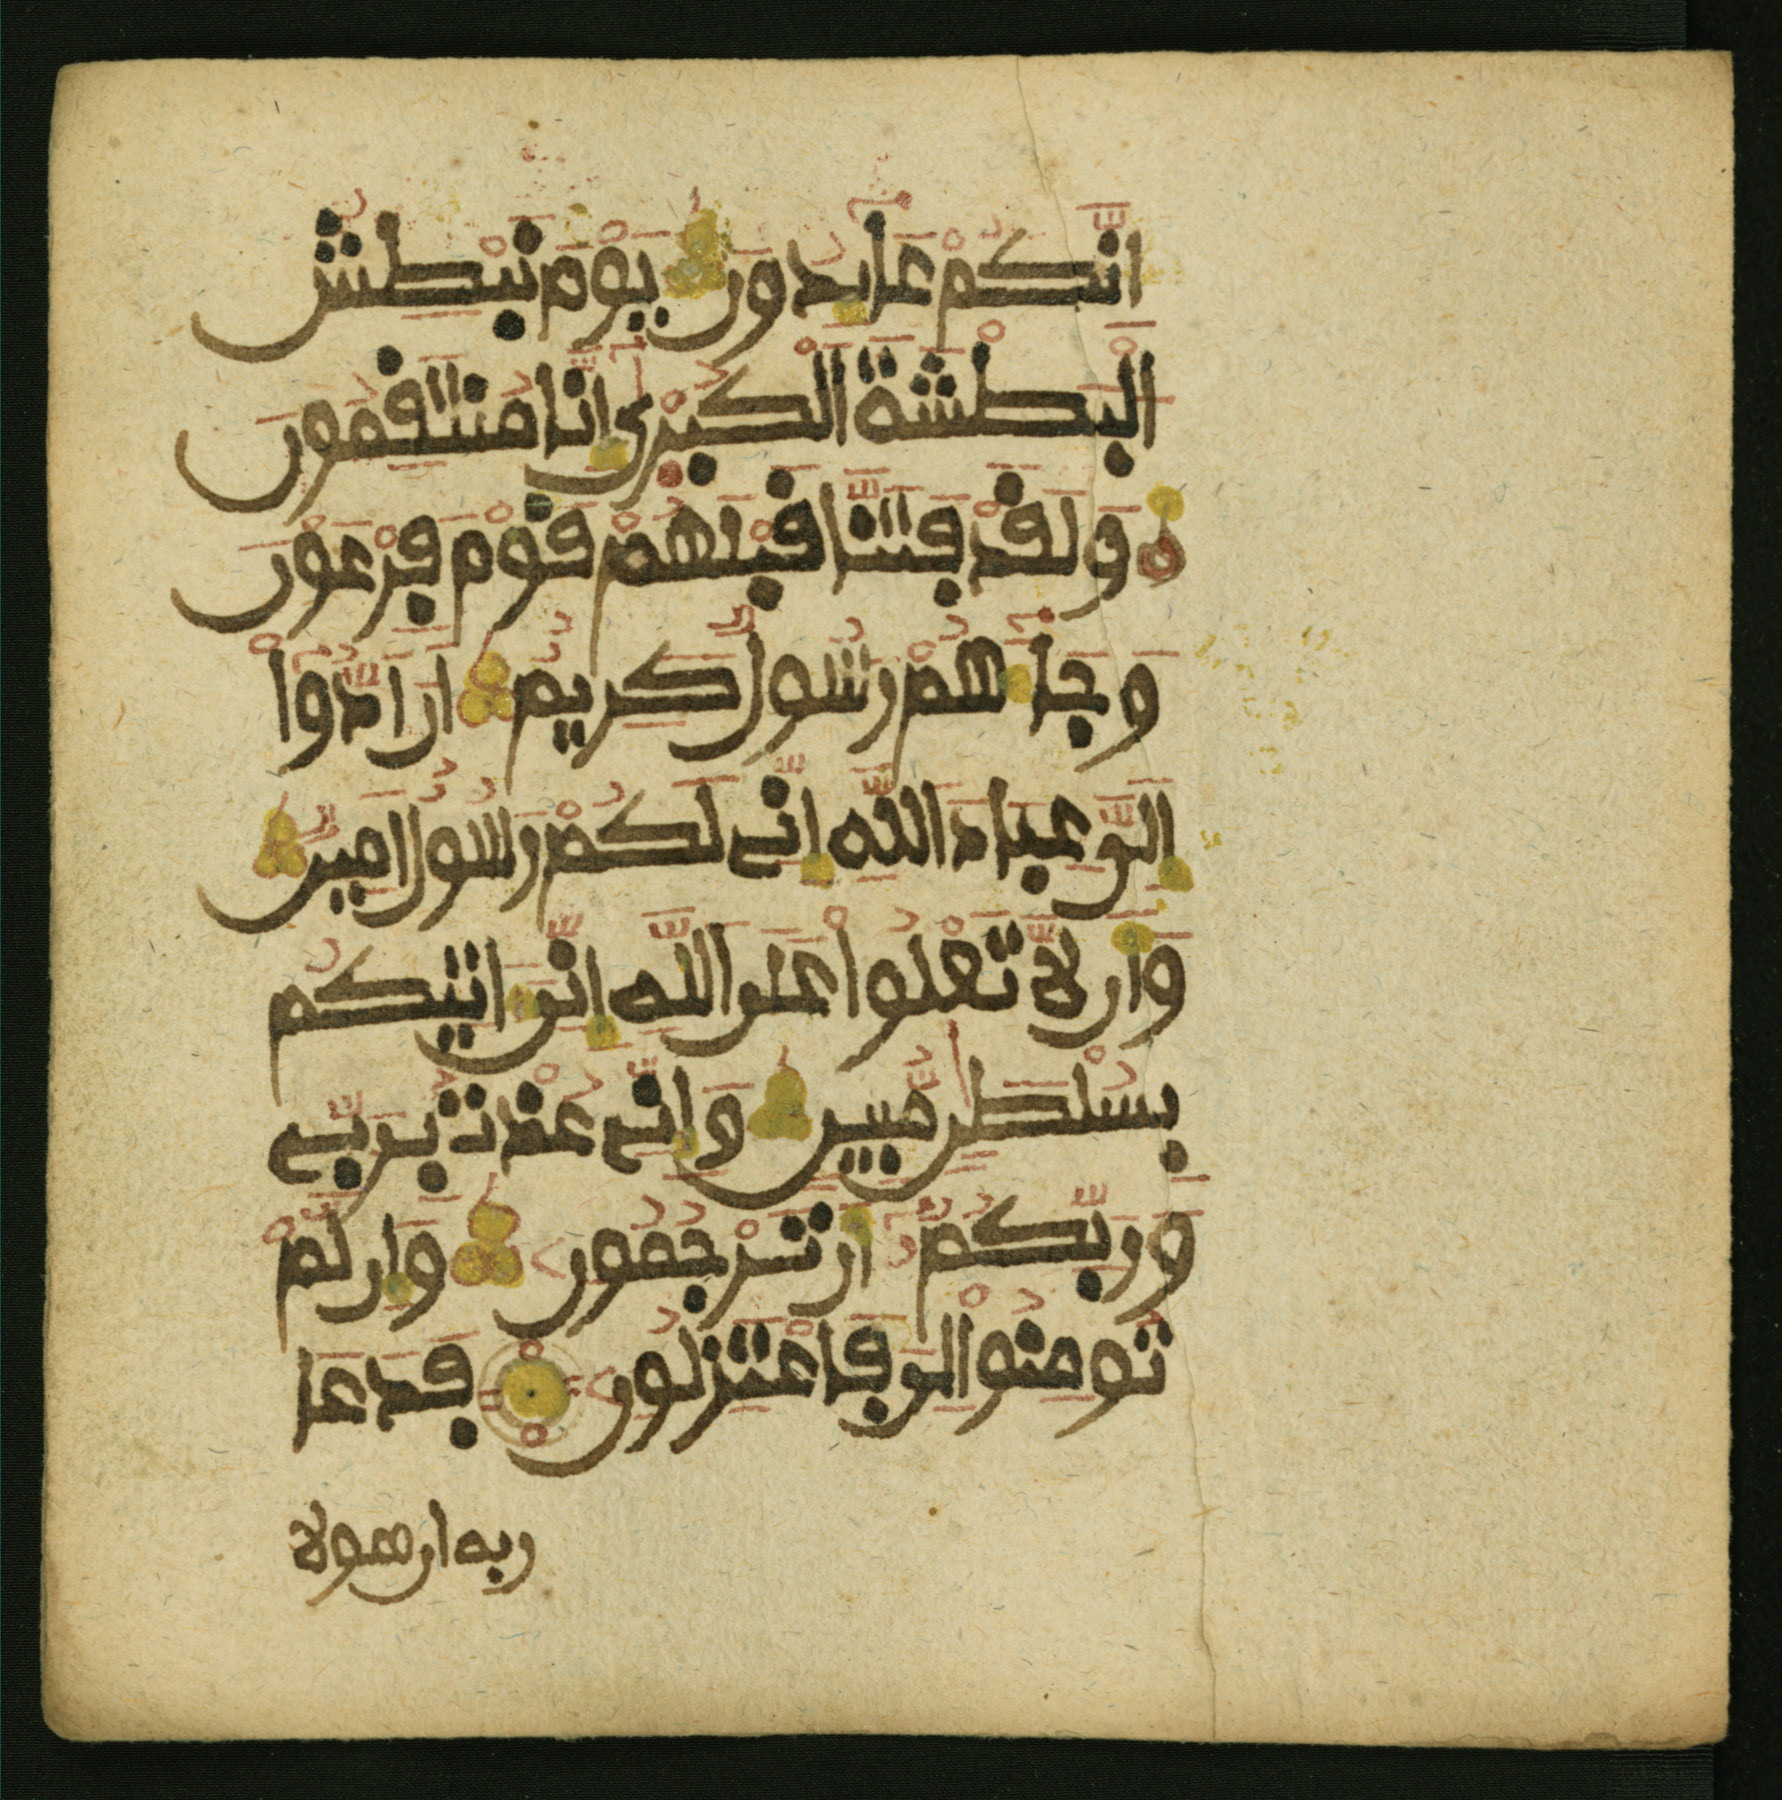 اِنَّكُمْ عَآىِٕدُونَ يَوْمَ نَبْطِشُ
الْبَطْشَةَ الْكُبْرٰىٓ اِنَّا مُنتَقِمُونَ
وَلَقَدْ فَتَنَّا قَبْلَهُمْ قَوْمَ فِرْعَوْنَ
وَجَآءَهُمْ رَسُولٌ كَرِيمٌ اَنَ اَدُّوٓاْ
اِلَىَّ عِبَادَ اللَّهِ اِنِّے لَكُمْ رَسُولٌ اَمِينٌ
وَأَن لَّا تَعْلُواْ عَلَى اللَّهِ اِنِّىٓ اتِيكُم
بِسُلْطَٰنٍ مُّبِينٍ وَاِنِّے عُذْتُ بِرَبِّے
وَرَبِّكُمُۥٓ أَن تَرْجُمُونِ وَاِن لَّمْ
تُومِنُواْ لِى فَاعْتَزِلُونِ فَدَعَا
ربه ان هولا